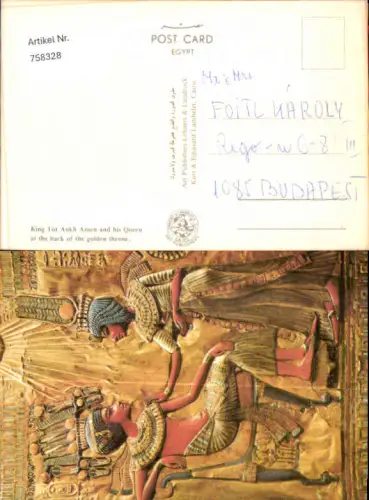 Artikel Nr.
758328
POST CARD
EGYPT
Mr & Mrs
FOITL KAROLY
1085 BUDAPEST
Art Publishers Lehnert & Landrock
Kurt & Edouard Lambelet, Cairo
King Tut Ankh Amen and his Queen
at the back of the golden throne.